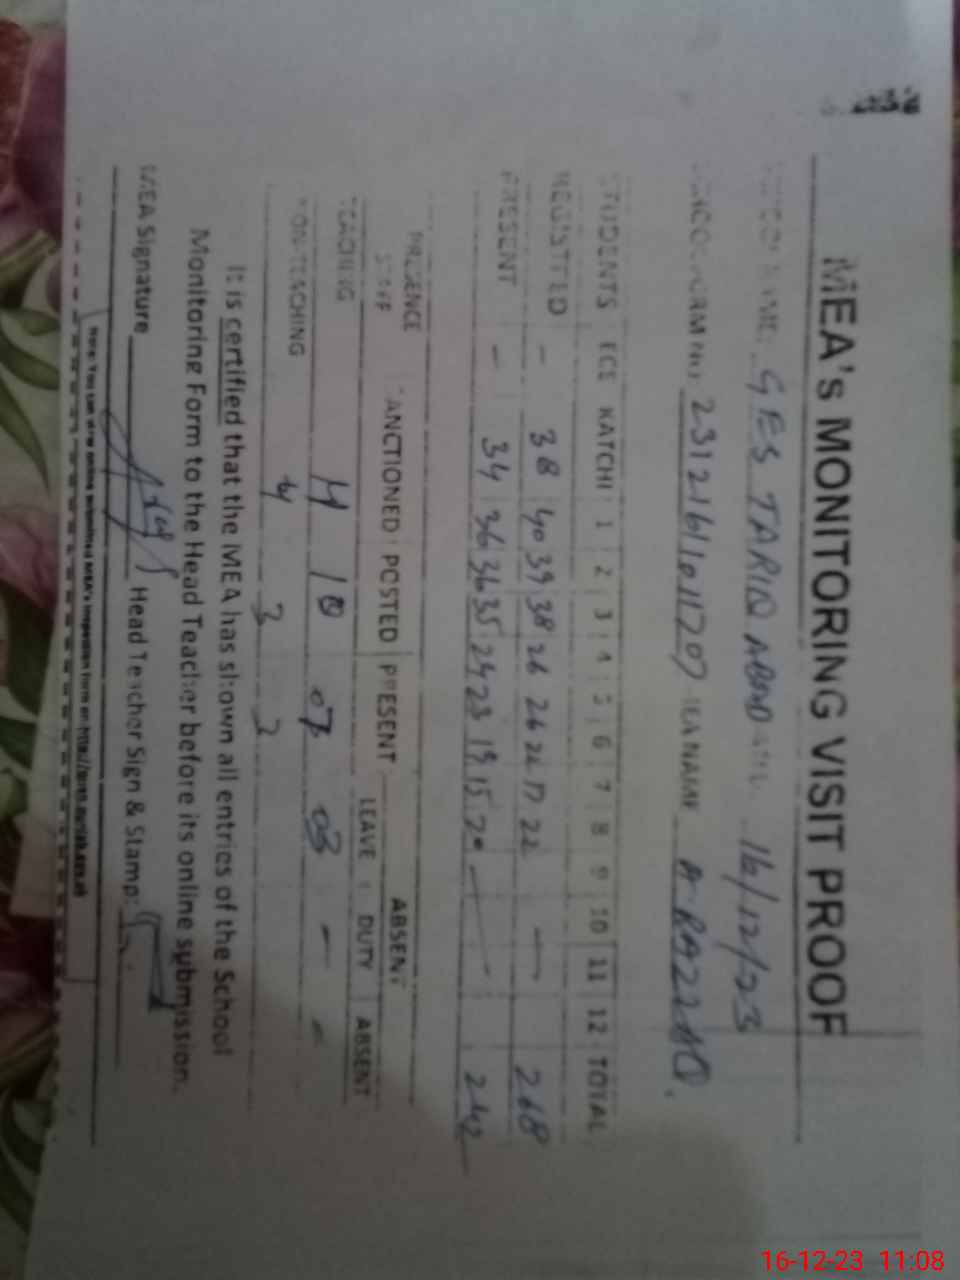 MEA's MONITORING VISIT PROOF
GES TARIQ ABAD 16/12/23
MEA NAME A-RAZZAQ.
STUDENTS ECE KATCHI 1 2 3 4 5 6 7 8 9 10 11 12 TOTAL
REGISTED - 38 40 39 38 26 26 22 17 22 - 268
PRESENT - 34 36 36 35 24 23 19 15 20 - 242
PRESENCE
STAFF SANCTIONED POSTED PRESENT ABSENT
LEAVE DUTY ABSENT
TEACHING 11 10 07 03 - -
NON-TEACHING 4 3 3
It is certified that the MEA has shown all entries of the School
Monitoring Form to the Head Teacher before its online submission.
MEA Signature Head Teacher Sign & Stamp:
Note: You can view online submitted MEA's inspection form on
16-12-23 11:08